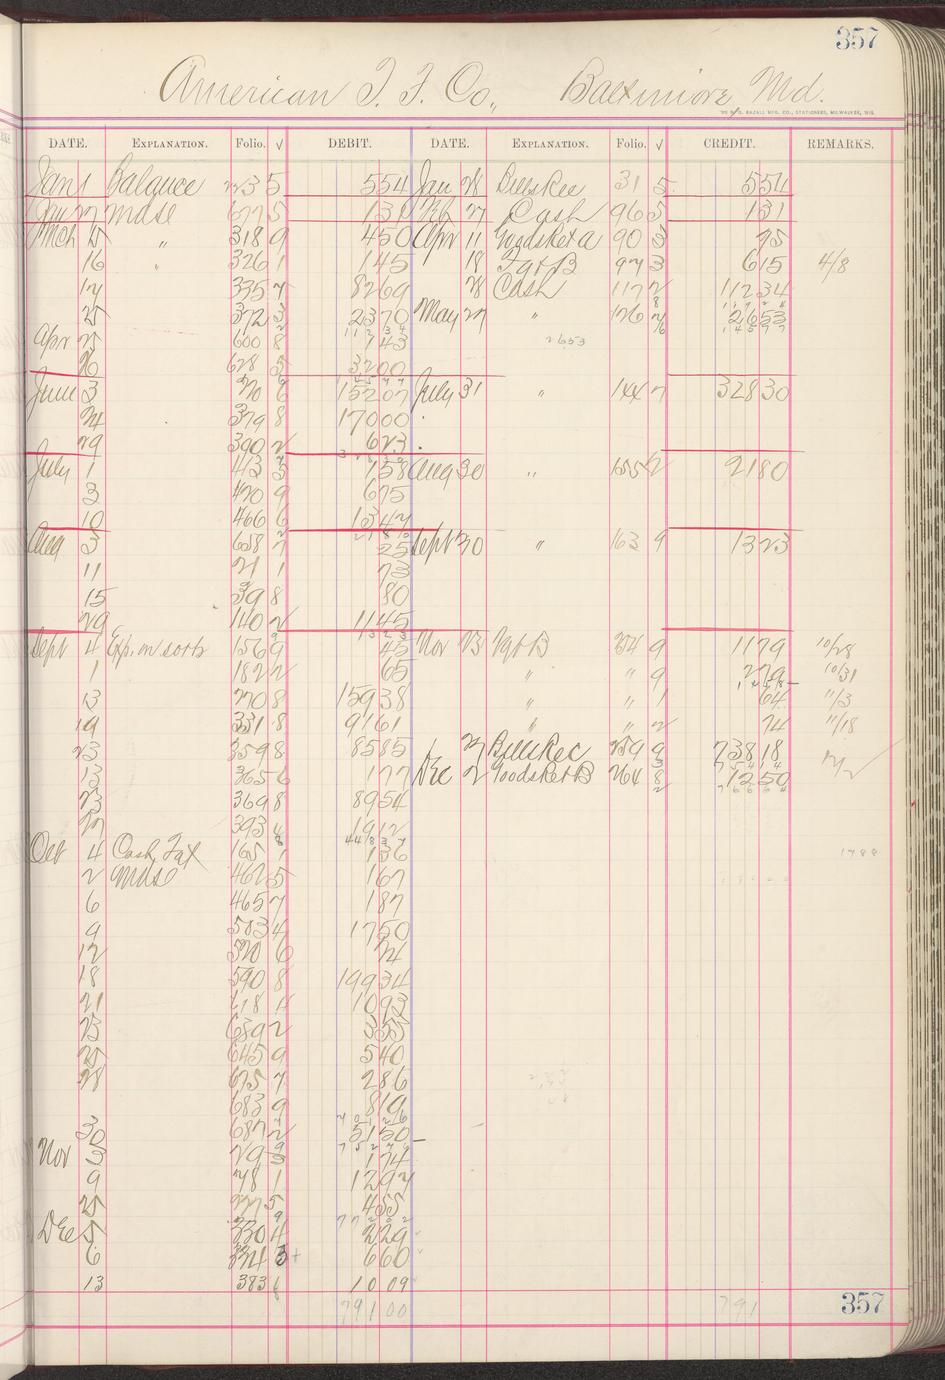 357
American T. F. Co., Baltimore Md.
DATE. EXPLANATION. Folio. √ DEBIT. DATE. EXPLANATION. Folio. √ CREDIT. REMARKS.
Jan 1 Balance 223 5 554 Jan 28 Bills Rec 31 5 554
Jan 27 Mdse 677 5 131 Feb 27 Cash 96 5 131
Mch 15 " 318 9 450 Apr 11 Goods ret a 90 3 95
16 " 326 1 145 18 Fgt B 97 3 615 4/8
17 335 7 8269 28 Cash 117 2 11234
25 372 3 2370 May 27 " 126 2653
Apr 25 600 8 143 2653
26 628 5 3200
June 3 20 6 15207 July 31 " 144 7 32830
24 379 8 17000
29 390 2 623
July 1 413 3 158 Aug 30 " 155 2 2180
3 420 9 675
10 466 6 1347
Aug 3 658 7 25 Sept 30 " 163 9 1323
11 21 1 73
15 39 8 80
29 140 2 1145
Sept 4 Exp. on sorts 156 9 45 Nov 23 Fgt B 254 9 1179 10/28
1 182 2 65 " " 9 279 10/31
13 270 8 15938 " " 1 64 11/3
19 331 8 9161 " " 2 74 11/18
23 359 8 8585 27 Bills Rec 259 9 73818
13 365 6 177 Dec 2 Goods ret B 264 8 1250
23 369 8 8954
27 393 4 1912
Oct 4 Cash, Fax 165 1 136 1788
2 Mdse 462 5 167
6 465 7 187
9 503 4 1750
12 520 6 24
18 590 8 19934
21 618 4 1093
23 639 2 355
25 645 9 540
28 675 7 286
683 9 819
30 687 2 5150
Nov 3 29 3 174
9 78 1 1297
25 277 5 455
Dec 5 330 4 229
6 334 3 660
13 383 6 1009
79100 791
357